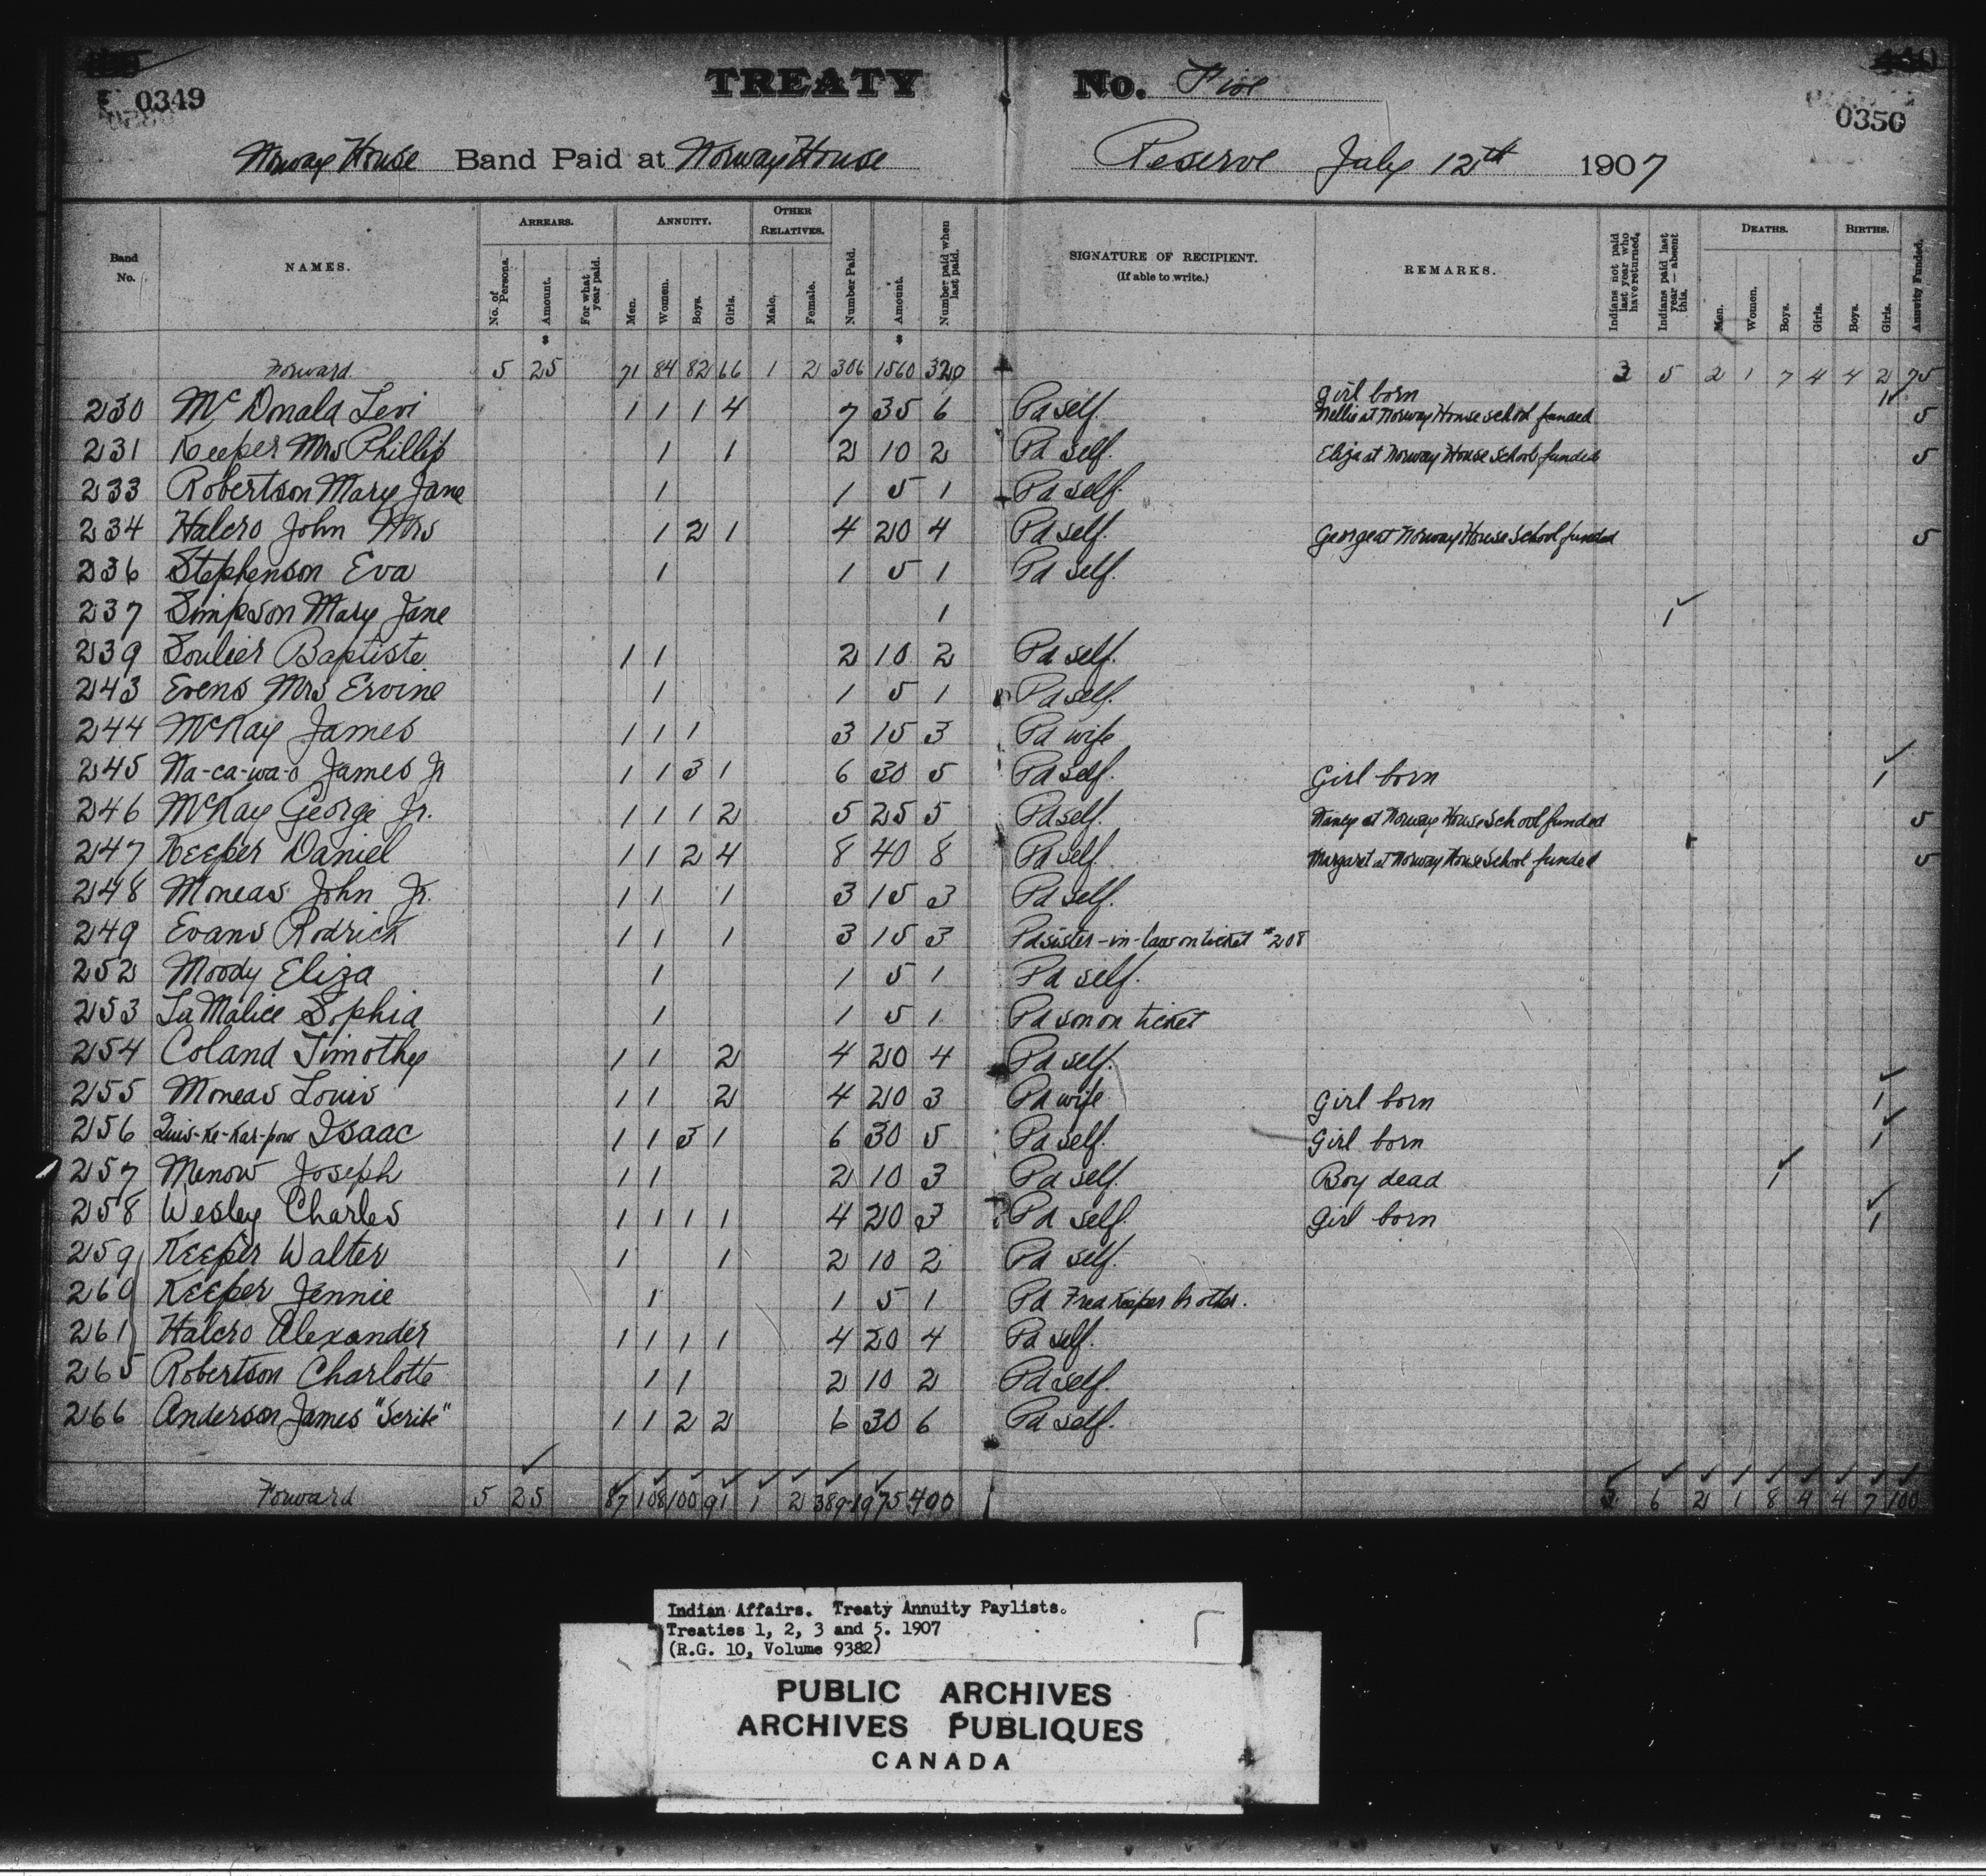 0349
TREATY No. Five
0350
Norway House Band Paid at Norway House Reserve July 12th 1907
Band No. NAMES. ARREARS. No. of Persons. Amount. For what year paid. ANNUITY. Men. Women. Boys. Girls. OTHER RELATIVES. Male. Female. Number Paid. Amount. Number paid when last paid. SIGNATURE OF RECIPIENT. (If able to write.) REMARKS. Indians not paid last year who have returned. Indians paid last year — absent this. DEATHS. Men. Women. Boys. Girls. BIRTHS. Boys. Girls. Annuity Funded.
Forward 5 25 71 84 82 66 1 2 306 1560 320 3 5 2 1 7 4 4 2 75
230 McDonald Levi 1 1 1 4 7 35 6 Pd self. Girl born 1
Nellie at Norway House school funded 5
231 Keeper Mrs Phillip 1 1 2 10 2 Pd self. Eliza at Norway House School funded 5
233 Robertson Mary Jane 1 1 5 1 Pd self.
234 Halcro John Mrs 1 2 1 4 20 4 Pd self. George at Norway House School funded 5
236 Stephenson Eva 1 1 5 1 Pd self.
237 Simpson Mary Jane 1 1
239 Soulier Baptiste 1 1 2 10 2 Pd self.
243 Evens Mrs Ervine 1 1 5 1 Pd self.
244 McKay James 1 1 1 3 15 3 Pd wife
245 Na-ca-wa-o James Jr 1 1 3 1 6 30 5 Pd self. Girl born 1
246 McKay George Jr. 1 1 1 2 5 25 5 Pd self. Nancy at Norway House School funded 5
247 Keeper Daniel 1 1 2 4 8 40 8 Pd self Margaret at Norway House School funded 5
248 Moneas John Jr. 1 1 1 3 15 3 Pd self.
249 Evans Rodrick 1 1 1 3 15 3 Pd sister-in-law on ticket #208
252 Moody Eliza 1 1 5 1 Pd self.
253 LaMalice Sophia 1 1 5 1 Pd son on ticket
254 Coland Timothy 1 1 2 4 20 4 Pd self.
255 Moneas Louis 1 1 2 4 20 3 Pd wife Girl born 1
256 Quis-Ke-Kar-pow Isaac 1 1 3 1 6 30 5 Pd self. Girl born 1
257 Menow Joseph 1 1 2 10 3 Pd self. Boy dead 1
258 Wesley Charles 1 1 1 1 4 20 3 Pd self. Girl born 1
259 Keeper Walter 1 1 2 10 2 Pd self.
260 Keeper Jennie 1 1 5 1 Pd Fred Keeper brother.
261 Halcro Alexander 1 1 1 1 4 20 4 Pd self.
265 Robertson Charlotte 1 1 2 10 2 Pd self.
266 Anderson James "Scribe" 1 1 2 2 6 30 6 Pd self.
Forward 5 25 87 108 100 91 1 2 389 1975 400 3 6 2 1 8 4 4 7 100
Indian Affairs. Treaty Annuity Paylists.
Treaties 1, 2, 3 and 5. 1907
(R.G. 10, Volume 9382)
PUBLIC ARCHIVES
ARCHIVES PUBLIQUES
CANADA